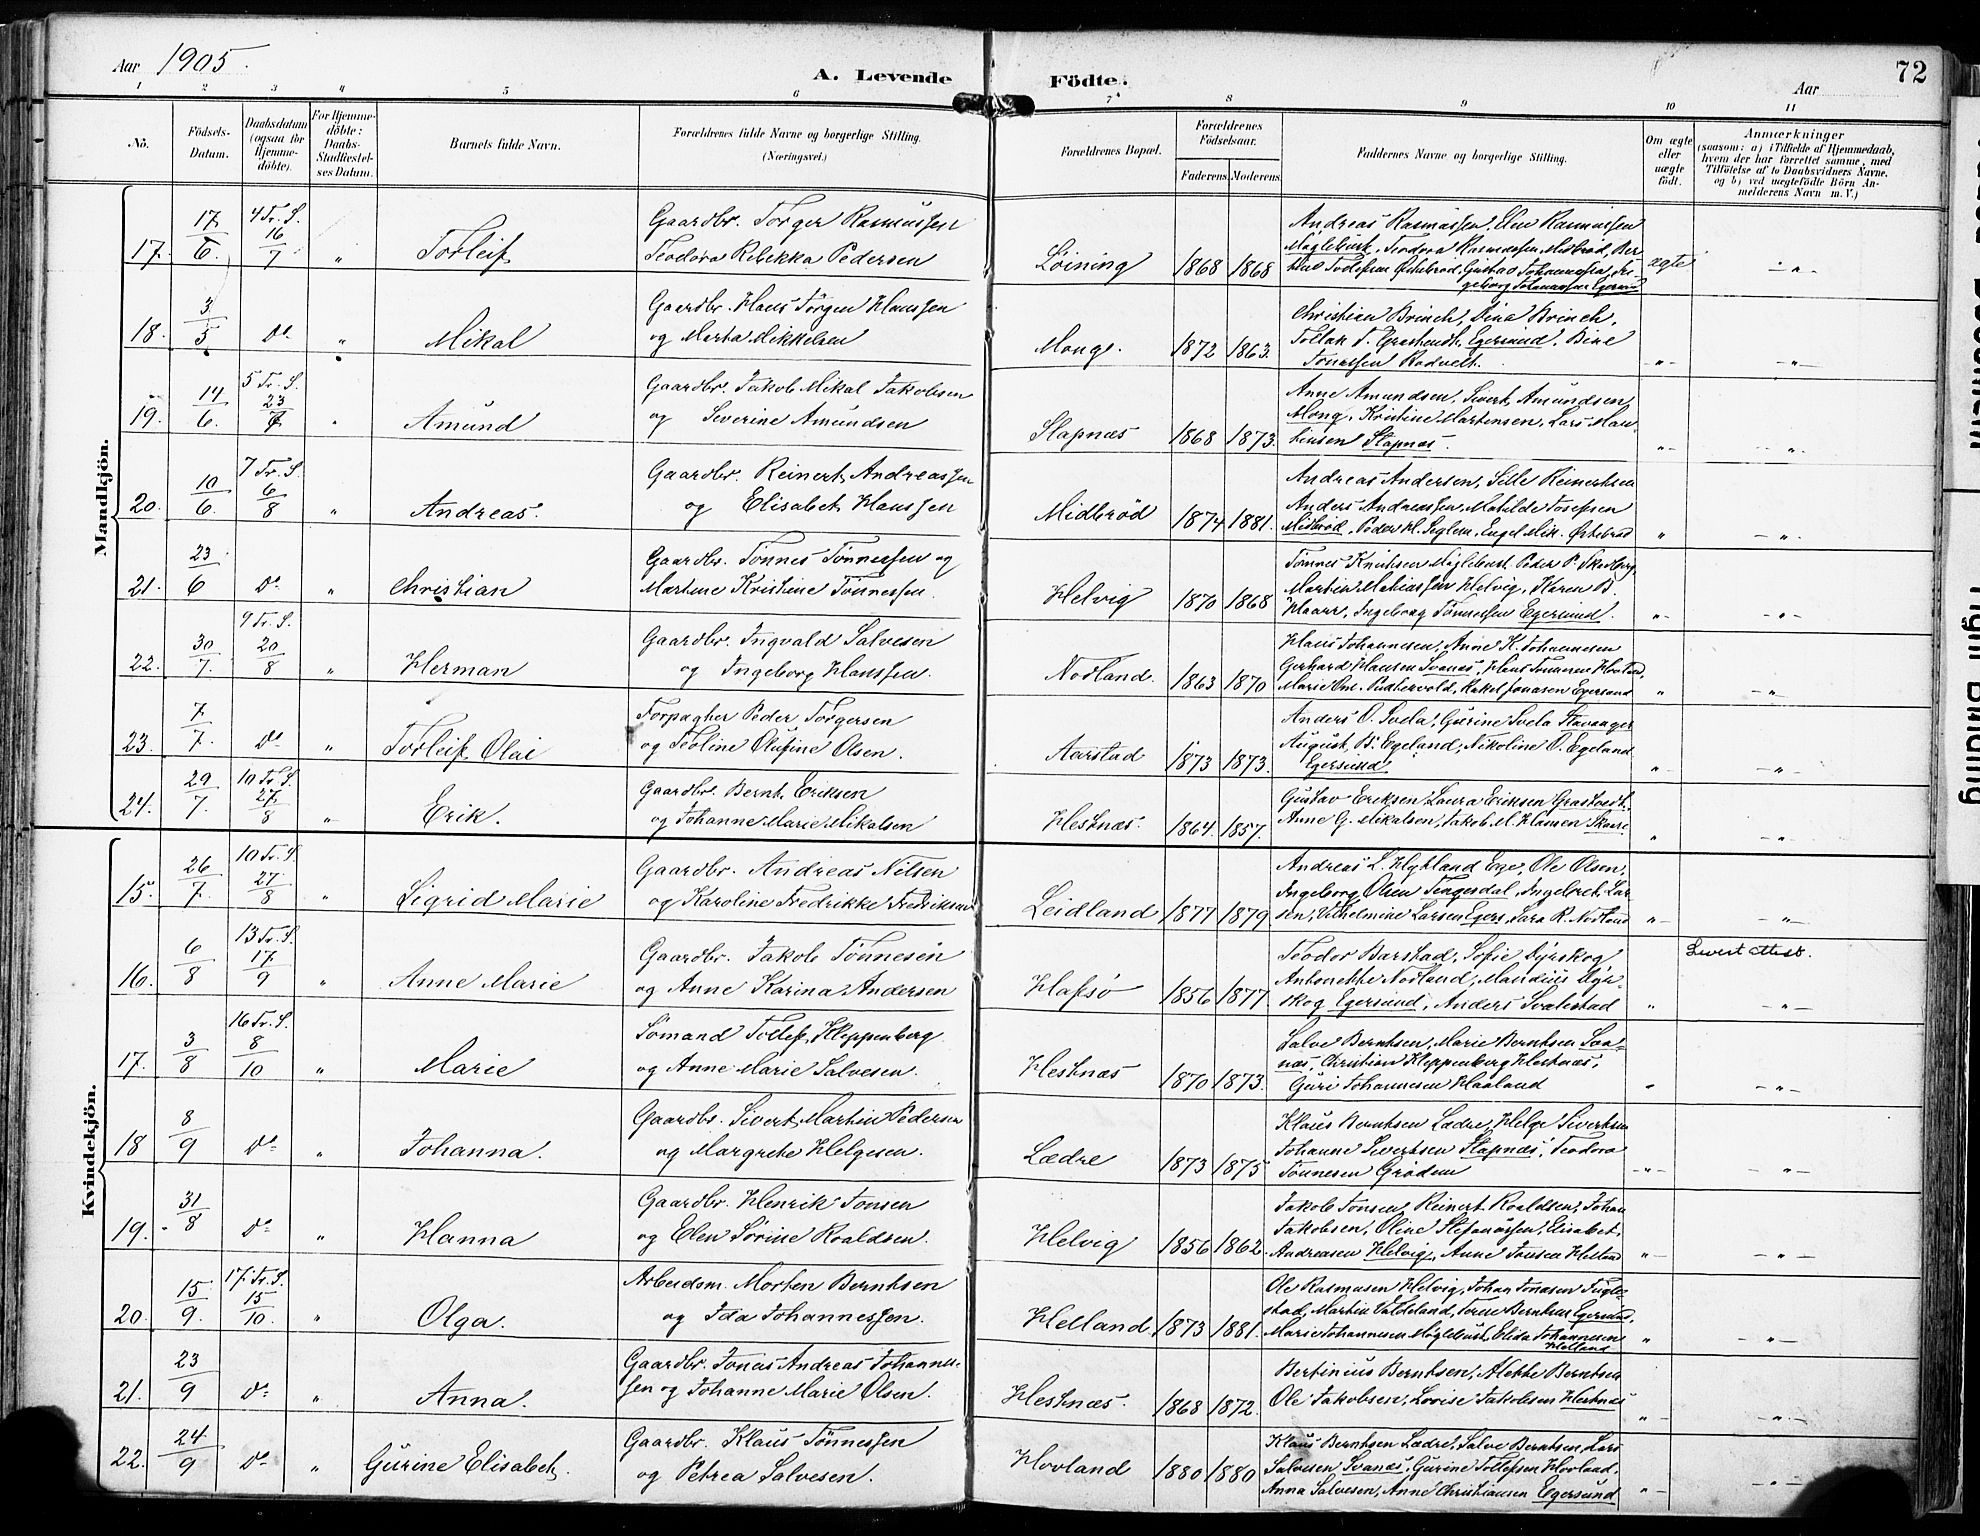 Aar 1905.
A. Levende Födte.
Aar
72
1 2 3 4 5 6 7 8 9 10 11
No.
Födsels-Datum.
Daabsdatum (ogsaa for Hjemmedöbte).
For Hjemmedöbte: Daabs-Stadfæstelses Datum.
Barnets fulde Navn.
Forældrenes fulde Navne og borgerlige Stilling.
(Næringsvei.)
Forældrenes Bopæl.
Forældrenes Födselsaar.
Faderens. Moderens.
Faddernes Navne og borgerlige Stilling.
Om ægte eller uægte födt.
Anmærkninger
(saasom: a) i Tilfælde af Hjemmedaab, hvem der har forrettet samme, med Tilföielse af to Daabsvidners Navne, og b) ved uægtefödte Börn Anmelderens Navn m. V.)
Mandkjön.
17. 17/6. 4 Tr. S. 16/7 „ Torleif Gaardbr. Torger Rasmussen
Teodora Rebekka Pedersen Löining 1868 1868
Andreas Rasmussen, Elen Rasmussen
Maglebust, Teodora Rasmussen, Midbröd, Ber
Tollefsen Östebröd, Gustav Johannessen, In-
geborg Johannessen Egersund ægte „
18. 3/5 Do „ Mikal Gaardbr. Hans Törgen Hanssen
og Marta Mikkelsen Monge. 1872 1863.
Christian Brinch, Dina Brinch,
Tollak T. Grastveidt, Egersund, Bine
Tonassen Rodvelt. „ „
19. 14/6. 5 Tr. S. 23/7 „ Amund Gaardbr. Jakob Mikal Jakobsen
og Severine Amundsen Stapnæs 1868 1873.
Anne Amundsen, Sivert Amundsen,
Mong, Kristine Martensen, Lars Mau-
ritsen Stapnæs. „ „
20. 10/6. 7 Tr. S. 6/8 „ Andreas. Gaardbr. Reinert Andreassen
og Elisabet Hanssen Midbröd 1874 1881.
Andreas Andersen, Sille Reinertsen
Anders Andreassen, Matilde Josefsen
Midbröd, Peder H. Seglem, Engel Mik. Östebröd „ „
21. 23/6 Do „ Christian Gaardbr. Tönnes Tönnessen og
Martine Kristine Tönnessen. Helvig 1870 1868
Tönnes Knutsen Maglebust, Peder P. Skadberg,
Martin Matiassen Helvig, Karen B.
Haarr, Ingeborg Tönnessen Egersund. „ „
22. 30/7. 9 Tr. S. 20/8 „ Herman Gaardbr. Ingvald Salvesen
og Ingeborg Hanssen. Nodland. 1863 1870
Hans Johannesen, Anne K. Johannesen
Gerhard Hansen Svanæs, Hans Tönnesen Hovland,
Marie One. Puntervold, Rakel Jonasen Egersund „ „
23. 7/7. Do „ Torleif Olai Forpagter Peder Torgersen
og Teoline Olufine Olsen. Aarstad 1873 1873.
Anders O. Svela, Gurine Svela Stavanger
August B. Egeland, Nikoline O. Egeland
Egersund „ „
24. 29/7. 10 Tr. S. 27/8 „ Erik. Gaardbr. Bernt Eriksen
og Johanne Marie Mikalsen Hestnæs. 1864. 1857.
Gustav Eriksen, Laura Eriksen Grastveidt,
Anne G. Mikalsen, Jakob M. Hansen Skaare „ „
Kvindekjön.
15. 26/7. 10 Tr. S. 27/8 „ Sigrid Marie Gaardbr. Andreas Nilsen
og Karoline Fredrikke Fredriksen Leidland 1877 1879.
Andreas L. Hykland Ege, Ole Olsen,
Ingeborg Olsen Tengesdal, Ingebret Lar-
sen, Vilhelmine Larsen Egers, Sara R. Nodland „ „
16. 6/8 13 Tr. S. 17/9 „ Anne Marie Gaardbr. Jakob Tönnesen
og Anne Karina Andersen Hafsö 1856 1877.
Teodor Barstad, Sofie Dyrskog,
Antonette Nodland, Mandius Dyr-
skog Egersund, Anders Svalestad „ Levert Attest. „
17. 3/8 16 Tr. S. 8/10 „ Marie Sömand Tollef Kleppenberg
og Anne Marie Salvesen. Hestnæs 1870 1873.
Salve Berntsen, Marie Berntsen Sva-
næs, Christian Kleppenberg Hestnæs,
Guri Johannesen Haaland „ „
18 8/9 Do „ Johanna. Gaardbr. Sivert Martin Pedersen
og Margrete Helgesen. Lædre 1873 1875
Klaus Berntsen Lædre, Helge Sivertsen
Johanne Sivertsen Stapnæs, Teodora
Tönnesen Grödem „ „
19. 31/8 Do „ Hanna Gaardbr. Henrik Tonsen
og Elen Sörine Roaldsen. Helvig 1856 1862.
Jakob Tonsen, Reinert Roaldsen, Johan
Jakobsen, Oline Stefanussen, Elisabet
Andreasen Helvig, Anne Tonsen Helland „ „
20. 15/9. 17. Tr. S. 15/10. „ Olga. Arbeidsm. Morten Berntsen
og Ida Johannessen. Helland 1873 1881.
Ole Rasmusen Helvig, Johan Jonasen Fugle-
stad, Martin Valdeland, Berntsen Egersund,
Marie Johannesen Maglebust, Elida Johannesen
Helland „ „
21. 23/9 Do „ Anna. Gaardbr. Jonas Andreas Johannes-
sen og Johanne Marie Olsen. Hestnæs. 1868 1872.
Bertinius Berntsen, Alette Berntsen
Ole Jakobsen, Lovise Jakobsen Hestnæs „ „
22. 24/9 Do „ Gurine Elisabet. Gaardbr. Klaus Tönnessen
og Petrea Salvesen. Hovland 1880 1880
Klaus Berntsen Lædre, Salve Berntsen, Lars
Salvesen Svanæs, Gurine Tollefsen Hovland,
Anna Salvesen, Anne Christiansen Egersund „ „
Tight Binding